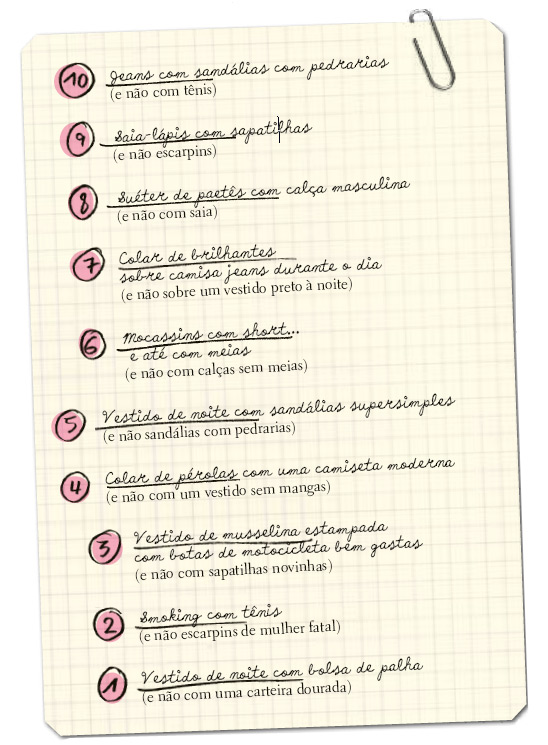 10 Jeans com sandálias com pedrarias
(e não com tênis)
9 Saia-lápis com sapatilhas
(e não escarpins)
8 Suéter de paetês com calça masculina
(e não com saia)
7 Colar de brilhantes
sobre camisa jeans durante o dia
(e não sobre um vestido preto à noite)
6 Mocassins com short...
e até com meias
(e não com calças sem meias)
5 Vestido de noite com sandálias supersimples
(e não sandálias com pedrarias)
4 Colar de pérolas com uma camiseta moderna
(e não com um vestido sem mangas)
3 Vestido de musselina estampada
com botas de motocicleta bem gastas
(e não com sapatilhas novinhas)
2 Smoking com tênis
(e não escarpins de mulher fatal)
1 Vestido de noite com bolsa de palha
(e não com uma carteira dourada)